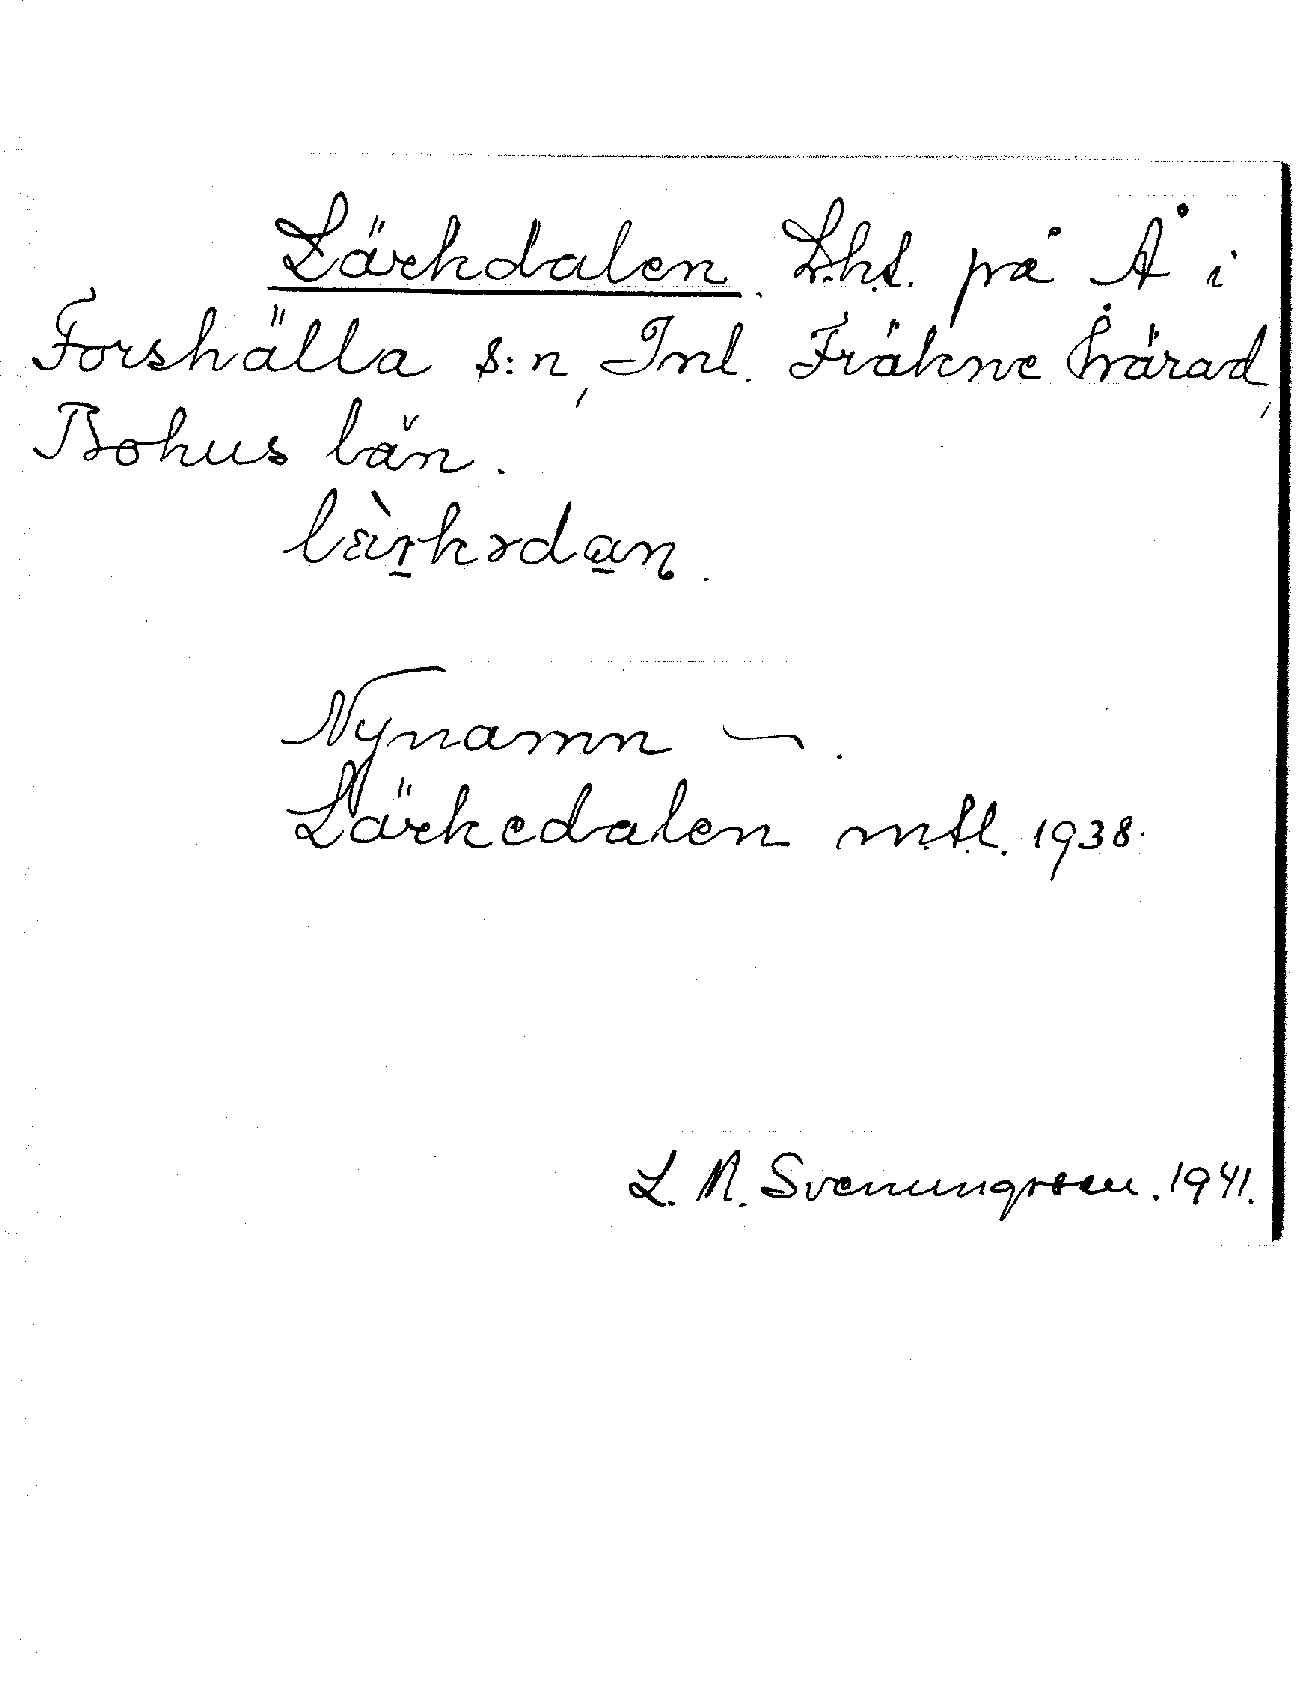 Lärkdalen. Lht. på Å i
Forshälla s:n, Inl. Fräkne härad,
Bohus län.
Nynamn —.
Lärkedalen mtl. 1938.
L. N. Svenungsson. 1941.